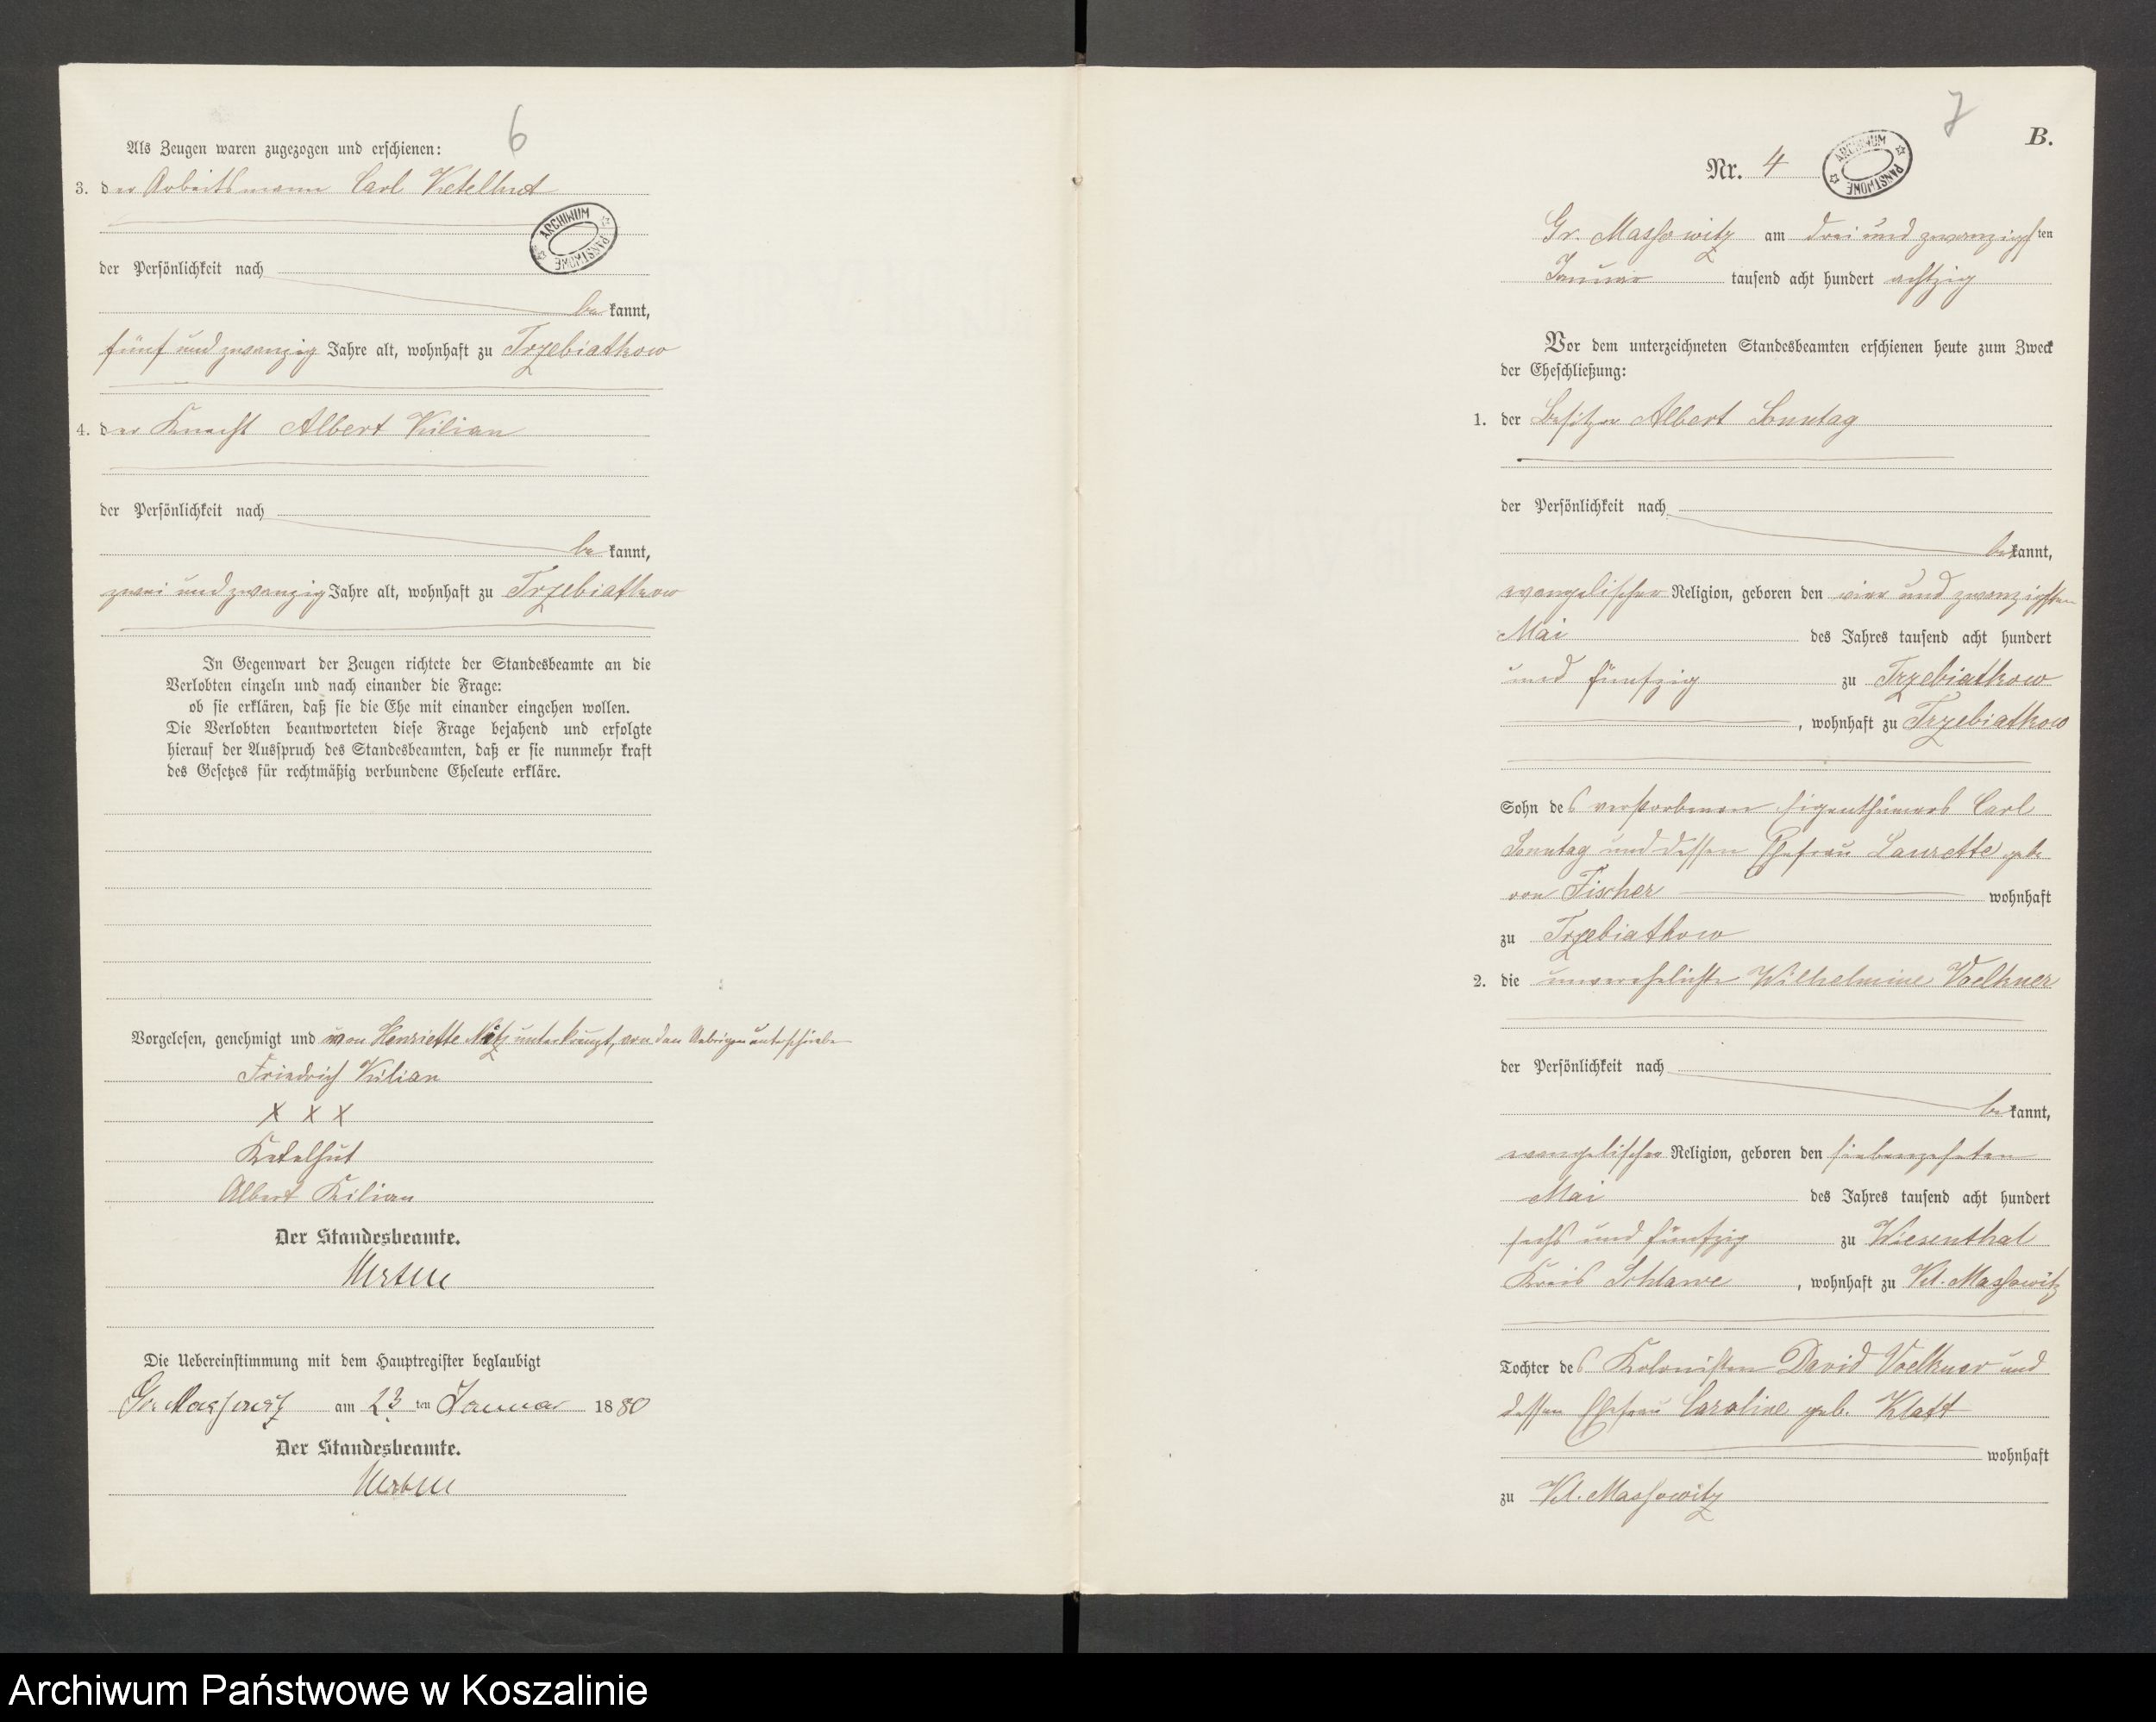 6
Als Zeugen waren zugezogen und erschienen:
3. der Arbeitsmann Carl Ketelhut
ARCHIWUM PAŃSTWOWE
der Persönlichkeit nach
be kannt,
fünf und zwanzig Jahre alt, wohnhaft zu Trzebiatkow
4. der Knecht Albert Kilian
der Persönlichkeit nach
be kannt,
zwei und zwanzig Jahre alt, wohnhaft zu Trzebiatkow
In Gegenwart der Zeugen richtete der Standesbeamte an die
Verlobten einzeln und nach einander die Frage:
ob sie erklären, daß sie die Ehe mit einander eingehen wollen.
Die Verlobten beantworteten diese Frage bejahend und erfolgte
hierauf der Ausspruch des Standesbeamten, daß er sie nunmehr kraft
des Gesetzes für rechtmäßig verbundene Eheleute erkläre.
Vorgelesen, genehmigt und von Henriette unterkreuzt, von den Uebrigen unterschrieben
Friedrich Kilian
X X X
Ketelhut
Albert Kilian
Der Standesbeamte.
Die Uebereinstimmung mit dem Hauptregister beglaubigt
Gr. Massowitz am 23 ten Januar 1880
Der Standesbeamte.
7
B.
Nr. 4
ARCHIWUM PAŃSTWOWE
Gr. Massowitz am drei und zwanzigsten
Januar tausend acht hundert achtzig
Vor dem unterzeichneten Standesbeamten erschienen heute zum Zweck
der Eheschließung:
1. der Besitzer Albert Sonntag
der Persönlichkeit nach
be kannt,
evangelischer Religion, geboren den vier und zwanzigsten
Mai des Jahres tausend acht hundert
und fünfzig zu Trzebiatkow
, wohnhaft zu Trzebiatkow
Sohn des verstorbenen Eigenthümers Carl
Sonntag und dessen Ehefrau Laurette gebo
ren Fischer wohnhaft
zu Trzebiatkow
2. die unverehelichte Wilhelmine Voelkner
der Persönlichkeit nach
be kannt,
evangelischer Religion, geboren den siebenzehnten
Mai des Jahres tausend acht hundert
sechs und fünfzig zu Wiesenthal
Kreis Schlawe, wohnhaft zu Kl. Massowitz
Tochter des Kolonisten David Voelkner und
dessen Ehefrau Caroline geb. Klatt
wohnhaft
zu Kl. Massowitz
Archiwum Państwowe w Koszalinie